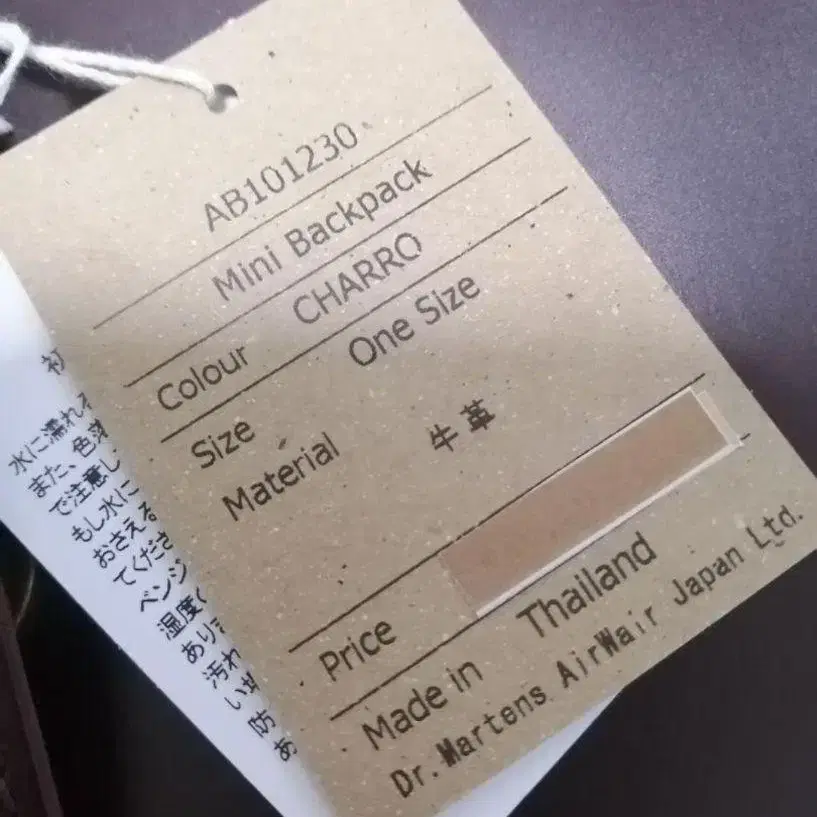 AB101230
Mini Backpack
Colour CHARRO
Size One Size
Material 牛革
Price
Made in Thailand
Dr.Martens AirWair Japan Ltd.
初
水に濡れ
また、色落
で注意し
もし水に
おさえる
てくださ
ベンジ
湿度
あり
汚れ
い場
防
あ